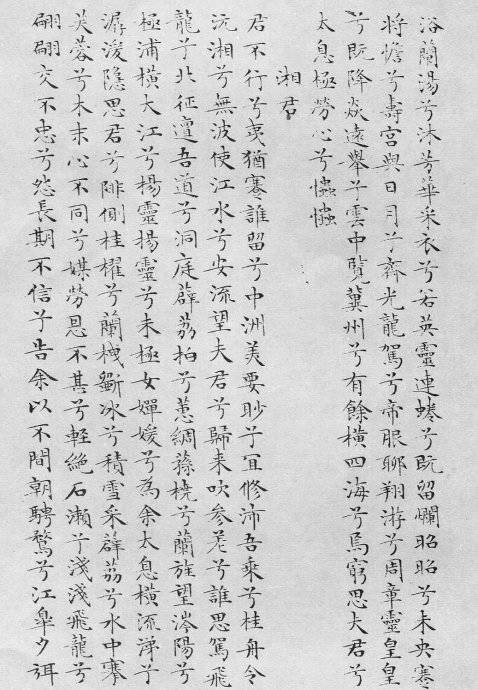 浴蘭湯兮沐芳華采衣兮若英靈連蜷兮既留爛昭昭兮未央蹇
將憺兮壽宮與日月兮齊光龍駕兮帝服聊翱游兮周章靈皇皇
兮既降猋遠舉兮雲中覽冀州兮有餘橫四海兮焉窮思夫君兮
太息極勞心兮忡忡
湘君
君不行兮夷猶蹇誰留兮中洲美要眇兮宜修沛吾乘兮桂舟令
沅湘兮無波使江水兮安流望夫君兮歸来吹参差兮誰思駕飛
龍兮北征邅吾道兮洞庭薜荔拍兮蕙綢蓀橈兮蘭旌望涔陽兮
極浦橫大江兮揚靈揚靈兮未極女嬋媛兮為余太息橫流涕兮
潺湲隱思君兮陫側桂櫂兮蘭枻斲冰兮積雪采薜荔兮水中搴
芙蓉兮木末心不同兮媒勞恩不甚兮輕絶石瀨兮淺淺飛龍兮
翩翩交不忠兮怨長期不信兮告余以不間朝騁騖兮江皋夕弭